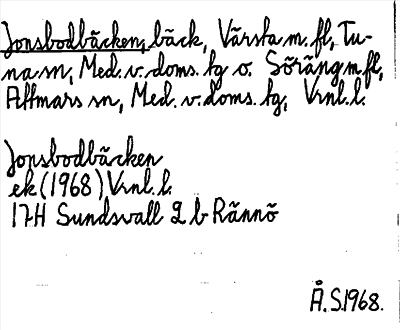 Jonsbodbäcken, bäck, Värsta m.fl, Tu-
na sn, Med. v. doms. tg o. Söräng m fl,
Attmars sn, Med. v. doms. tg, Vnl. l.
Jonsbodbäcken
ek (1968) Vnl. l.
17H Sundsvall 2 b Rännö
Å.S.1968.